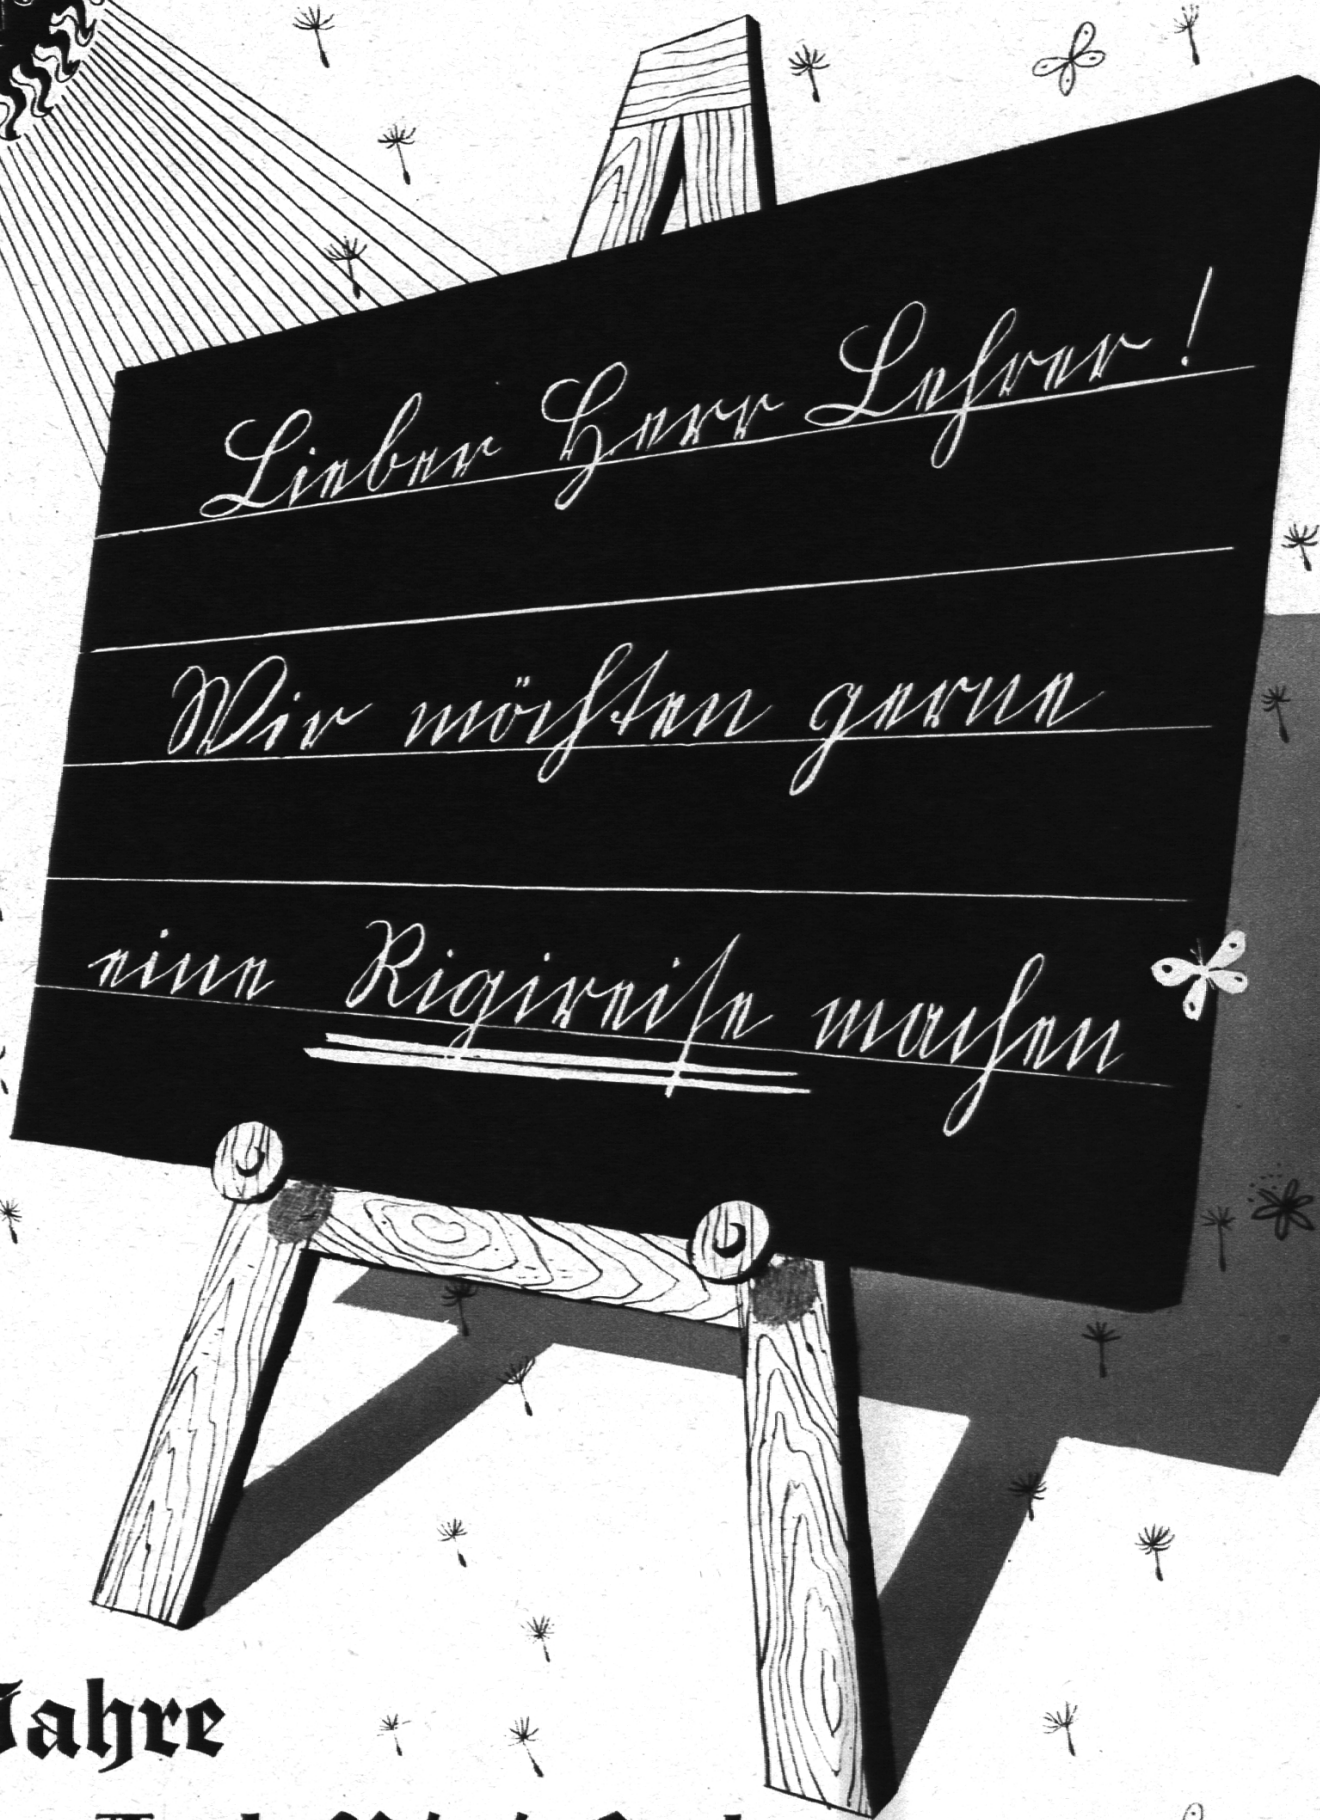 Lieber Herr Lehrer!
Wir möchten gerne
eine Rigireise machen
Jahre